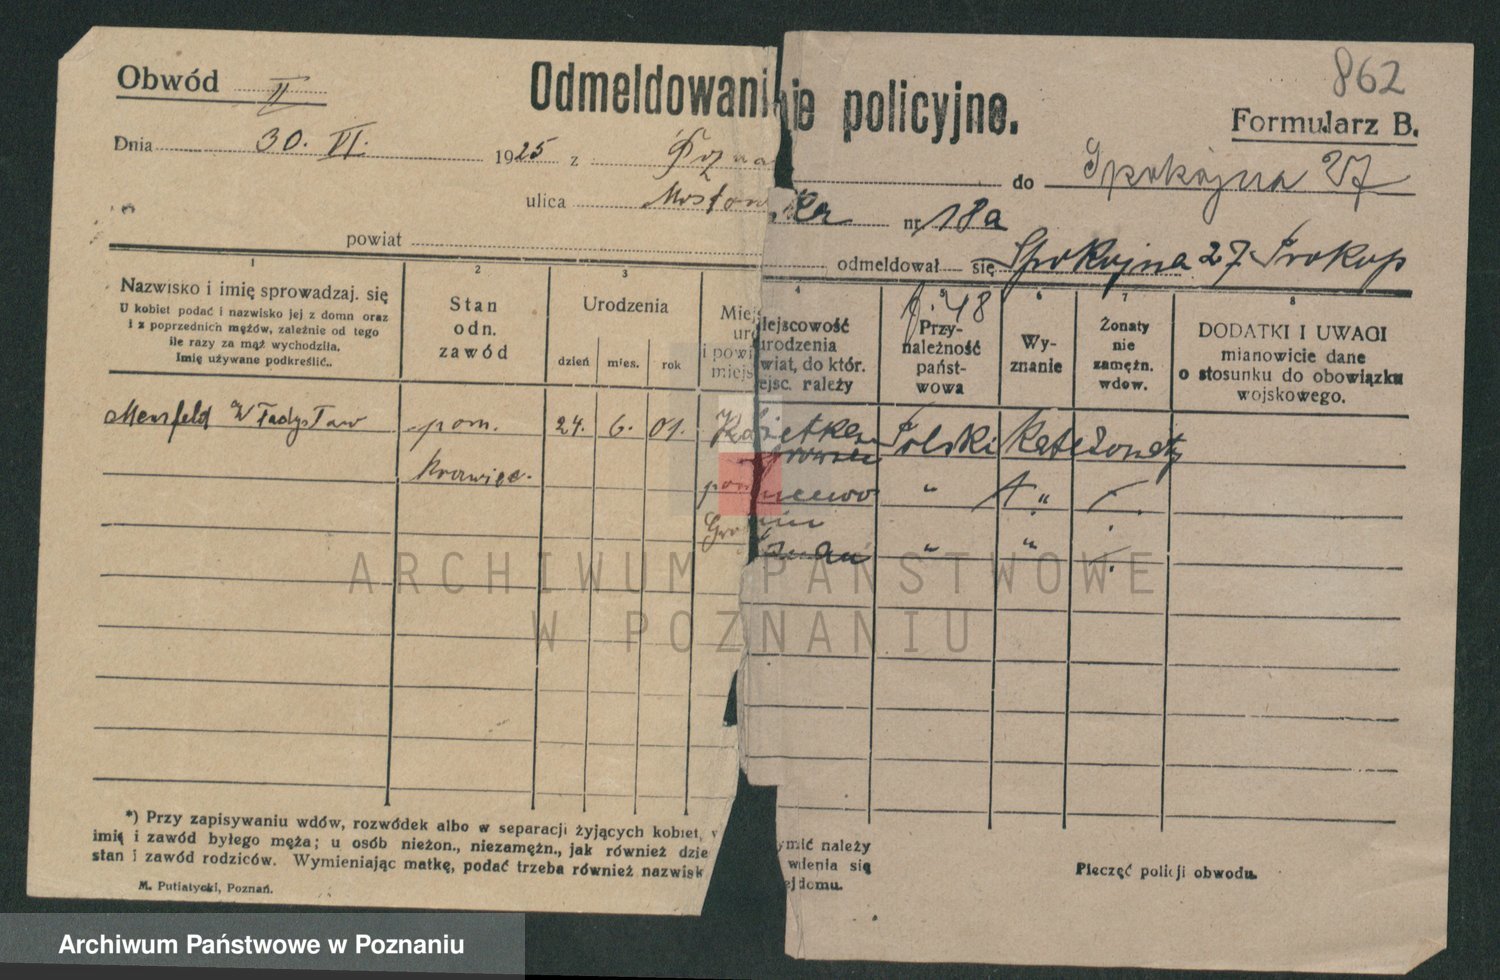 862
Obwód II
Odmeldowanie policyjne.
Formularz B.
Dnia 30. VI. 1925 z Pozna do Spokojna 27
ulica Mostow nr 18a
powiat
odmeldował się Spokojna 27 Prokop
p. 48
1 2 3 4 5 6 7 8
Nazwisko i imię sprowadzaj. się
U kobiet podać i nazwisko jej z domn oraz
i z poprzednich mężów, zależnie od tego
ile razy za mąż wychodziła.
Imię używane podkreślić..
Stan
odn.
zawód
Urodzenia
dzień mies. rok
Miejscowość
urodzenia
i powiat, do któr.
miejsc. należy
Przy-
należność
państ-
wowa
Wy-
znanie
Żonaty
nie
zamężn.
wdow.
DODATKI I UWAGI
mianowicie dane
o stosunku do obowiązku
wojskowego.
Mensfeld Władysław pom. 24. 6. 01. Polski Kat. żonaty
Krawiec.
ARCHIWUM PAŃSTWOWE
W POZNANIU
*) Przy zapisywaniu wdów, rozwódek albo w separacji żyjących kobiet,
imię i zawód byłego męża; u osób nieżon., niezamężn., jak również dzie
stan i zawód rodziców. Wymieniając matkę, podać trzeba również nazwisk
ymić należy
wilenia się
ej domu.
M. Putiatycki, Poznań.
Pieczęć policji obwodu.
Archiwum Państwowe w Poznaniu